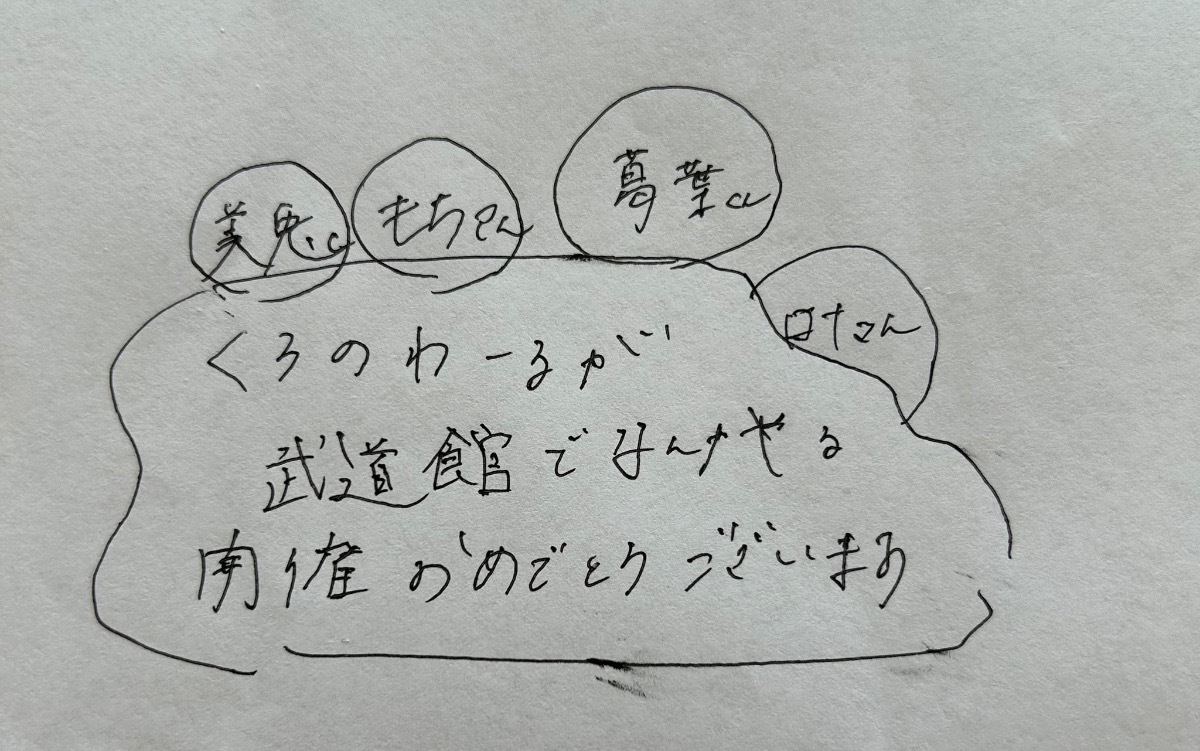 美兎さん
もちさん
葛葉さん
ロナさん
くろのわーるが
武道館でなんかやる
開催おめでとうございます